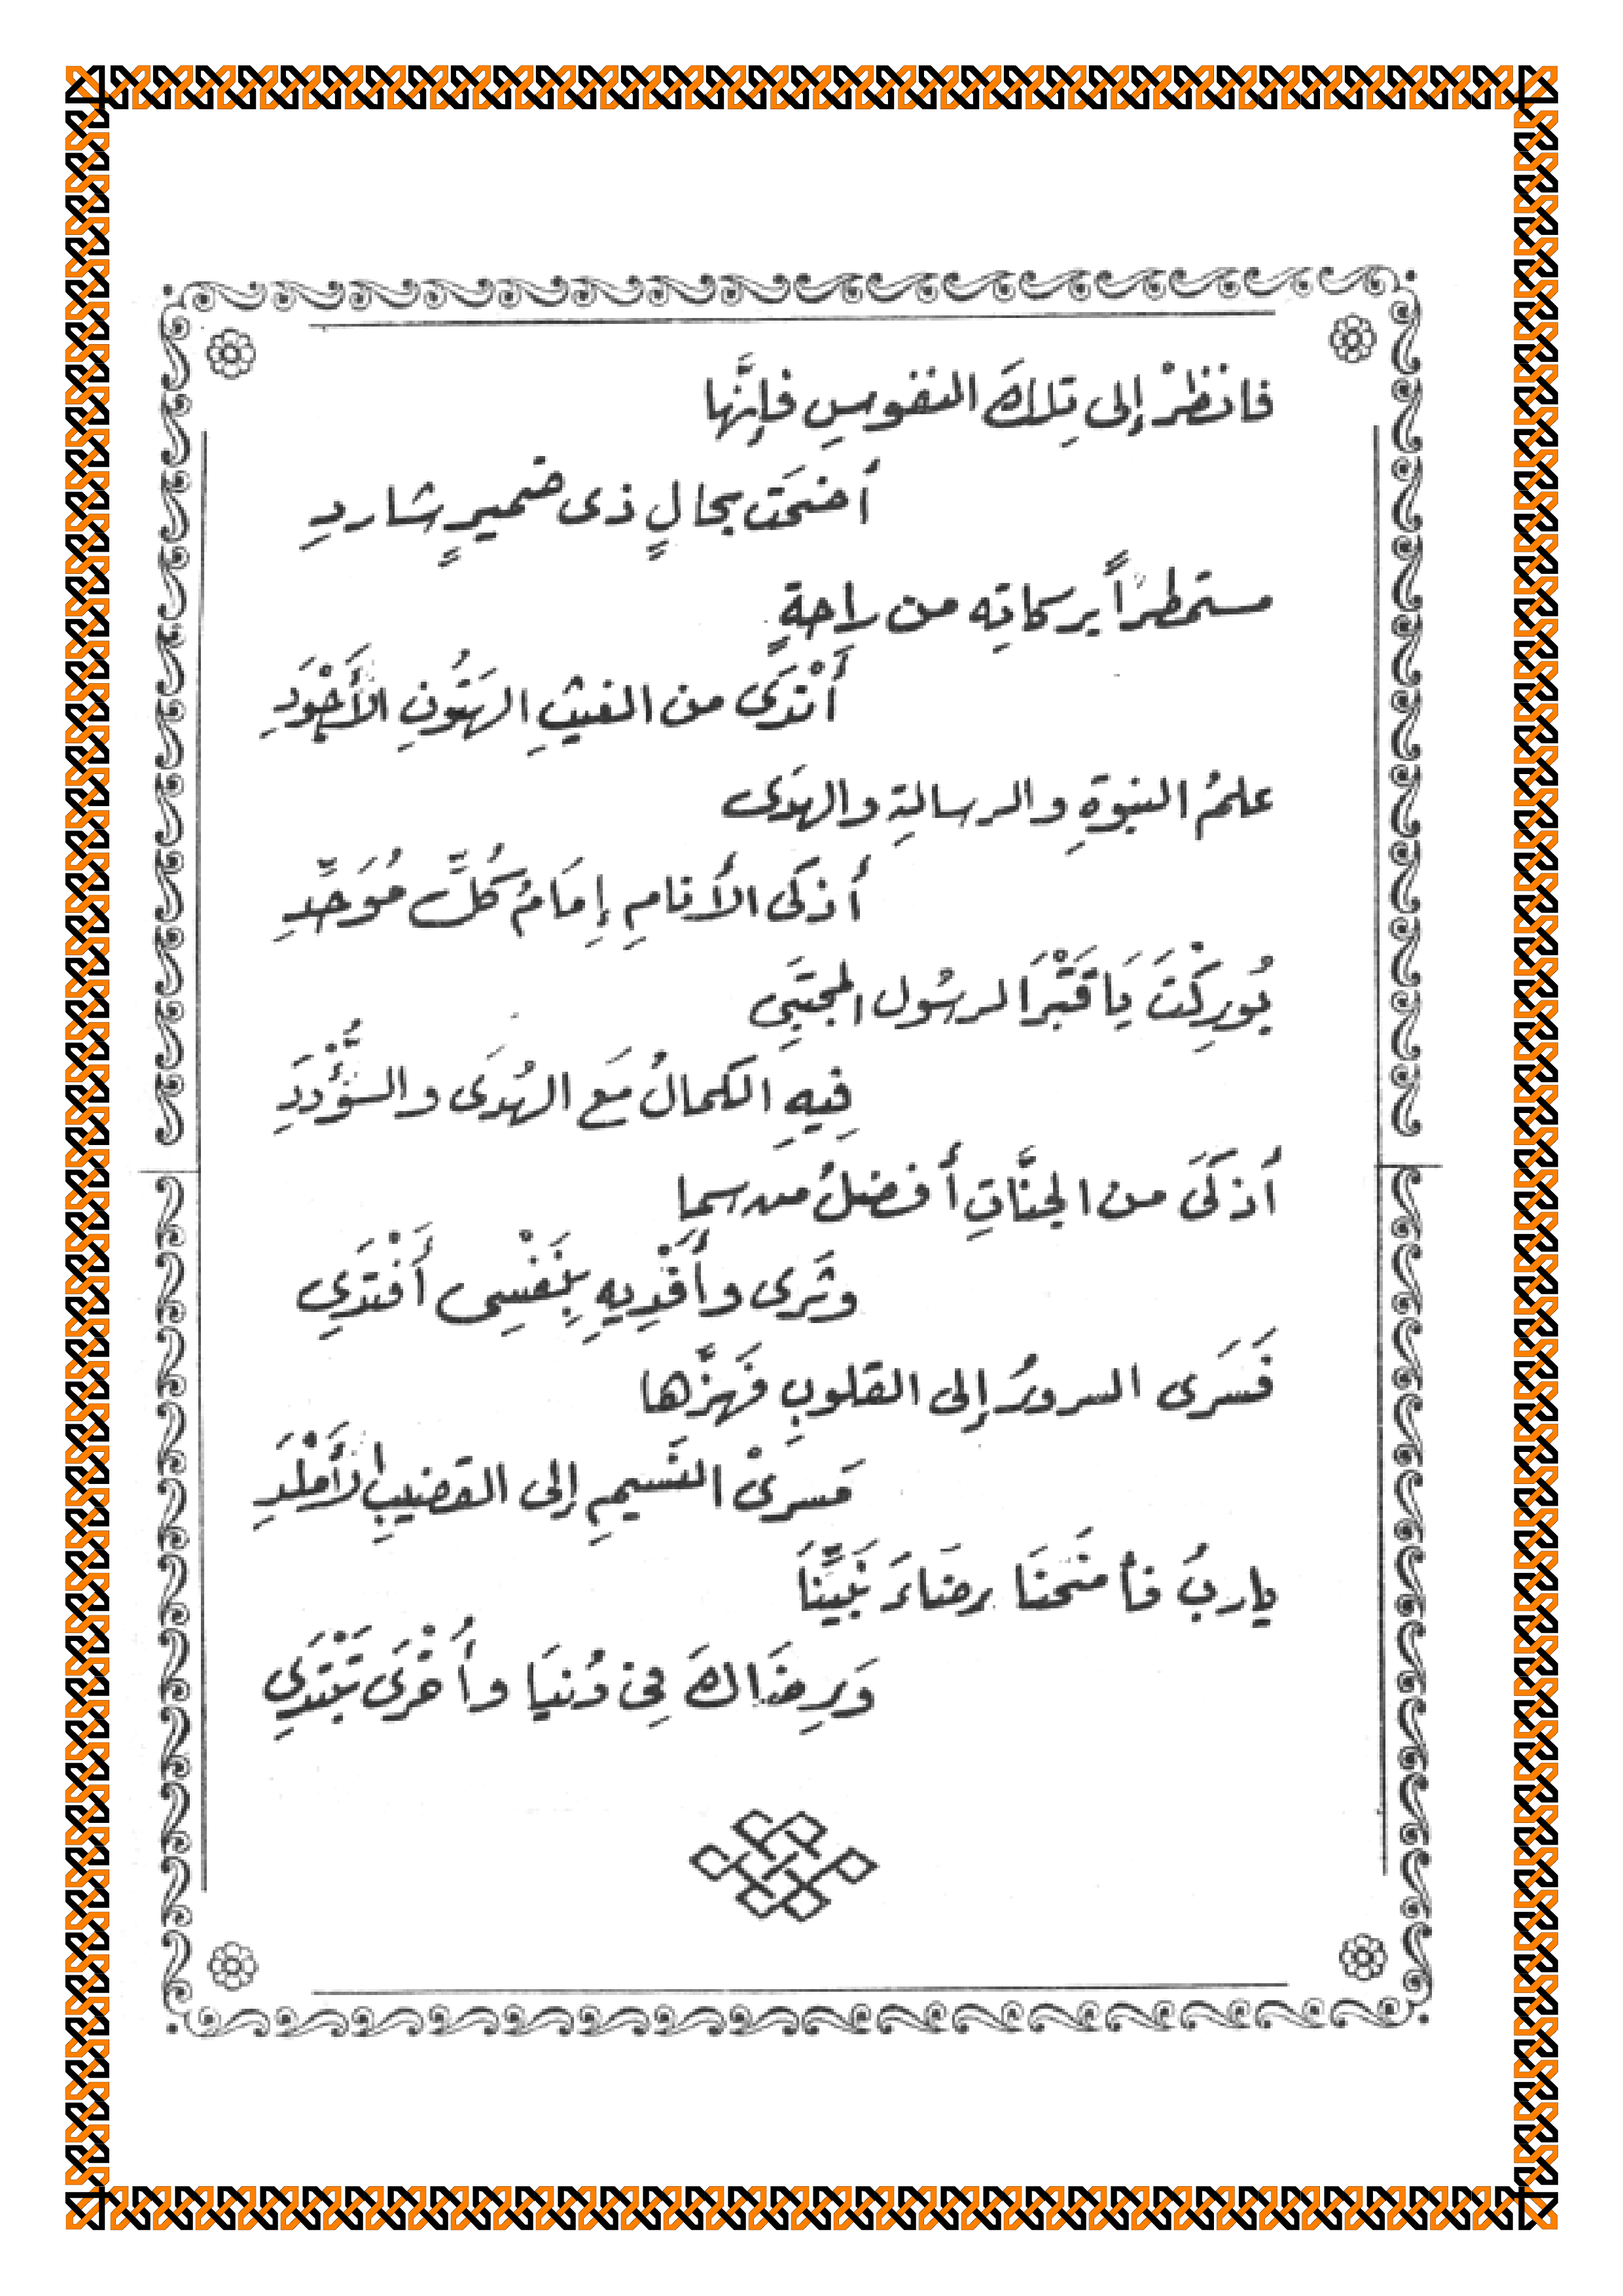 فانظرْ إلى تِلكَ النفوسِ فإنَّها
أضحَت بحالٍ ذى ضميرٍ شاردِ
مستمطراً بركاتِه من راحةٍ
أَنْدَى من الغيثِ الهَتُونِ الأَجْوَدِ
علمُ النبوةِ والرسالةِ والهدَى
أذكَى الأنامِ إمَامُ كُلِّ مُوَحِّدِ
بُورِكْتَ يَا قَبْرَ الرسُول المجتبَى
فِيهِ الكمالُ مَع الهُدَى والسُّؤْدَدِ
أذكَىَ من الجنَّاتِ أفضلُ من سما
وثَرى وأَفْدِيهِ بِنَفْسِى أَفْتَدِي
فَسَرَى السرورُ إلى القلوبِ فَهزَّها
مَسرىْ النَسيمِ إلى القضيبِ الأَمْلَدِ
يارب فأمنَحنَا رضَاءَ نَبيِّنَا
وَرِضَاكَ فِى دُنيَا وأُخْرَى نَبْتَدِي